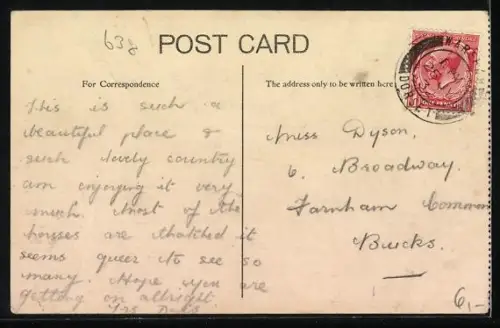 638
POST CARD
For Correspondence
This is such a
beautiful place &
such lovely country
am enjoying it very
much. Most of the
houses are thatched it
seems queer to see so
many. Hope you are
getting on allright.
Yrs
The address only to be written here
Miss Dyson,
6, Broadway.
Farnham Common
Bucks.
WAR
DORSET
6,-